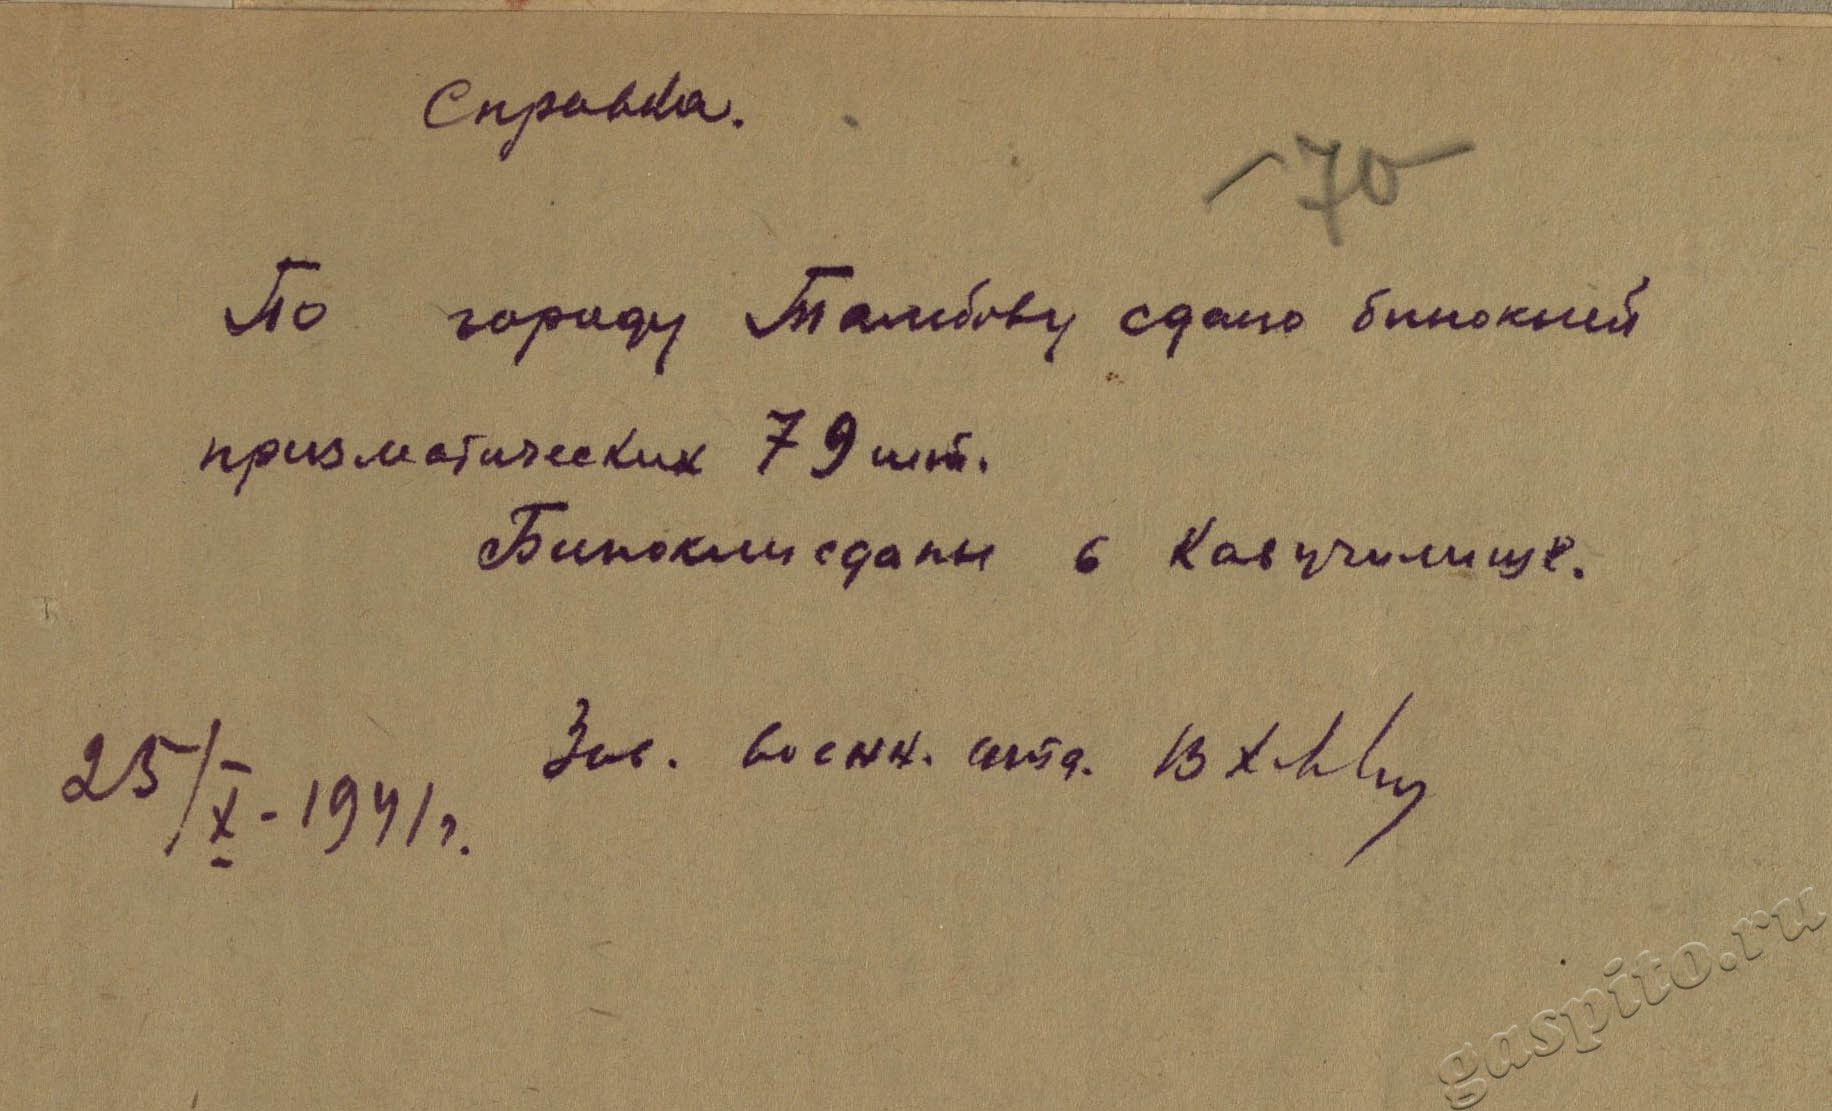 Справка.
70
По городу Тамбову сдано биноклей
призматических 79 шт.
Бинокли сданы в Кавучилище.
25/X-1941г. Зав. военн. отд.
gaspito.ru